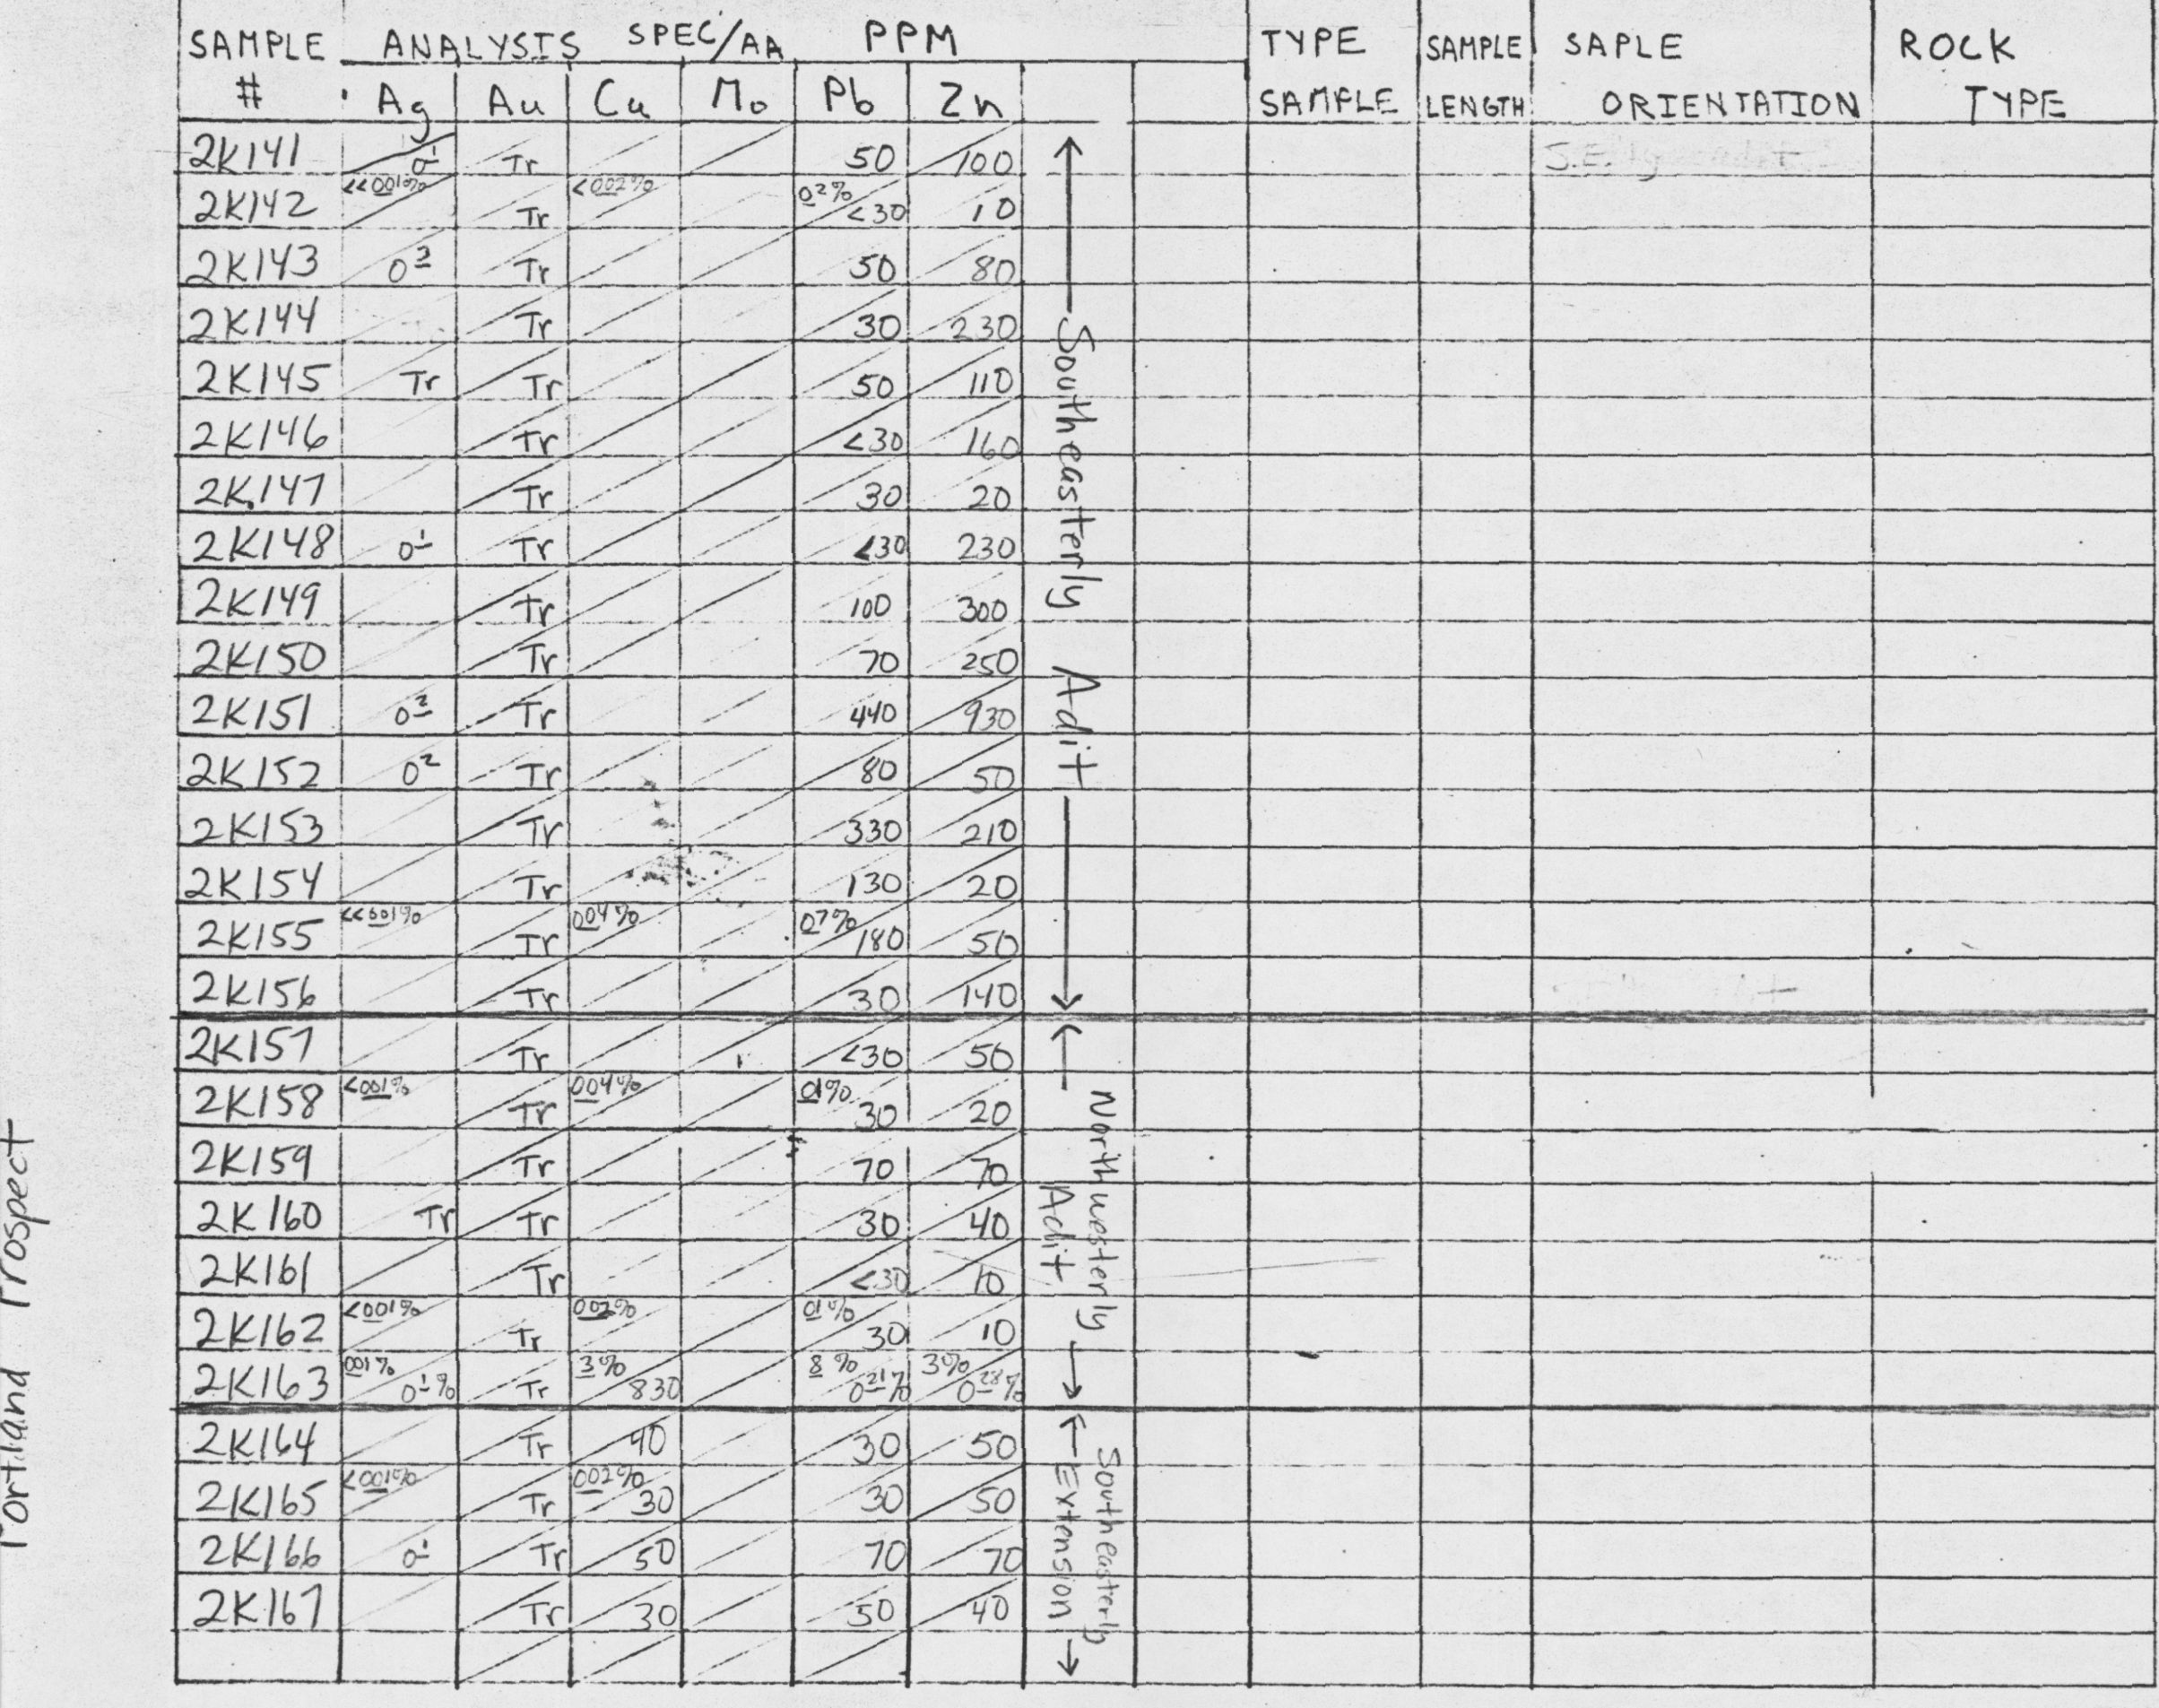 SAMPLE # ANALYSIS SPEC/AA PPM TYPE SAMPLE SAMPLE LENGTH SAPLE ORIENTATION ROCK TYPE
Ag Au Cu Mo Pb Zn
2K141 0¹ Tr 50 100
2K142 <<001% Tr <002% 02% <30 10
2K143 0³ Tr 50 80
2K144 Tr 30 230
2K145 Tr Tr 50 110
2K146 Tr <30 160
2K147 Tr 30 20
2K148 0¹ Tr <30 230
2K149 Tr 100 300
2K150 Tr 70 250
2K151 0² Tr 440 930
2K152 0² Tr 80 50
2K153 Tr 330 210
2K154 Tr 130 20
2K155 <<001% Tr 004% 07% 180 50
2K156 Tr 30 140
Southeasterly Adit
2K157 Tr <30 50
2K158 <001% Tr 004% 01% 30 20
2K159 Tr 70 70
2K160 Tr Tr 30 40
2K161 Tr <30 10
2K162 <001% Tr 002% 01% 30 10
2K163 001% 0¹% Tr 3% 830 8% 0²¹% 3% 0²⁸%
Northwesterly
Adit
2K164 Tr 40 30 50
2K165 <001% Tr 002% 30 30 50
2K166 0¹ Tr 50 70 70
2K167 Tr 30 50 40
Southeasterly
Extension
Portland Prospect